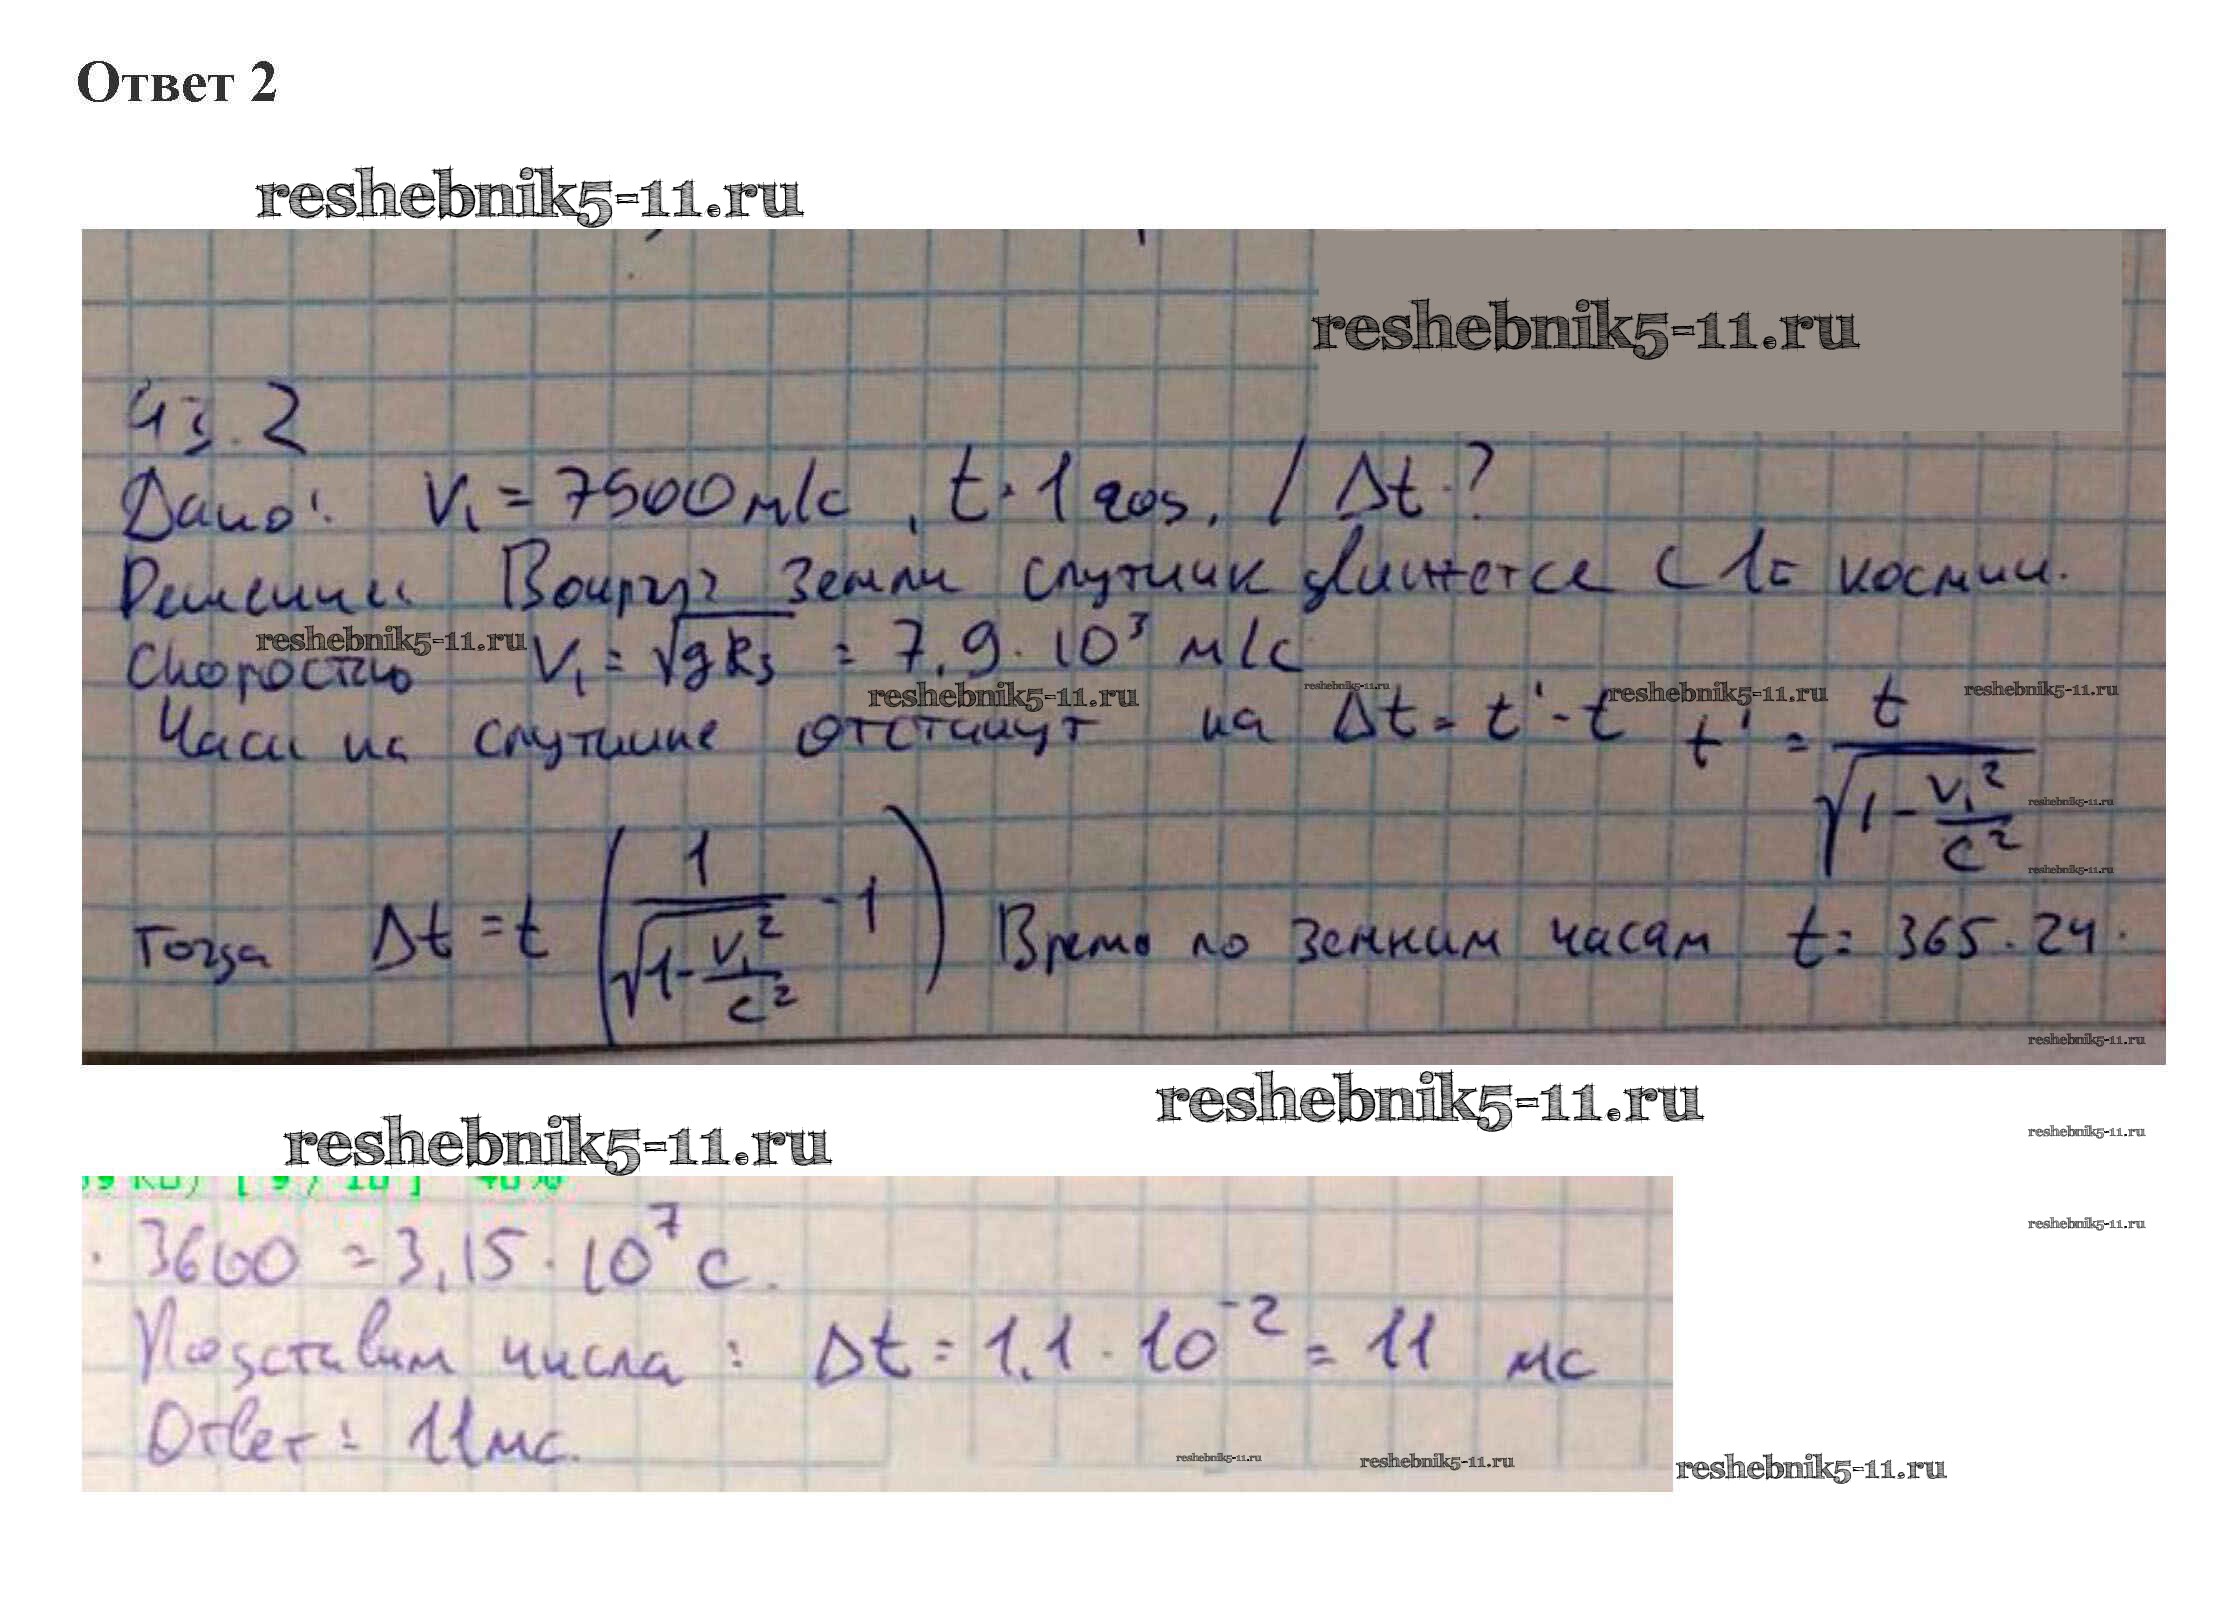 Ответ 2
reshebnik5-11.ru
reshebnik5-11.ru
43.2
Дано: V₁ = 7900 м/с, t = 1 год. / Δt - ?
Решение: Вокруг Земли спутник движется с 1й космич.
reshebnik5-11.ru
скоростью V₁ = √gRз = 7,9 · 10³ м/с
reshebnik5-11.ru reshebnik5-11.ru reshebnik5-11.ru reshebnik5-11.ru
Часы на спутнике отстанут на Δt = t' - t t' = t / √(1 - V₁²/c²)
reshebnik5-11.ru
reshebnik5-11.ru
тогда Δt = t (1 / √(1 - V₁²/c²) - 1) Время по земным часам t = 365 · 24 ·
reshebnik5-11.ru
reshebnik5-11.ru
reshebnik5-11.ru
reshebnik5-11.ru
· 3600 = 3,15 · 10⁷ с.
reshebnik5-11.ru
Подставим числа: Δt = 1,1 · 10⁻² = 11 мс
Ответ: 11 мс.
reshebnik5-11.ru reshebnik5-11.ru reshebnik5-11.ru